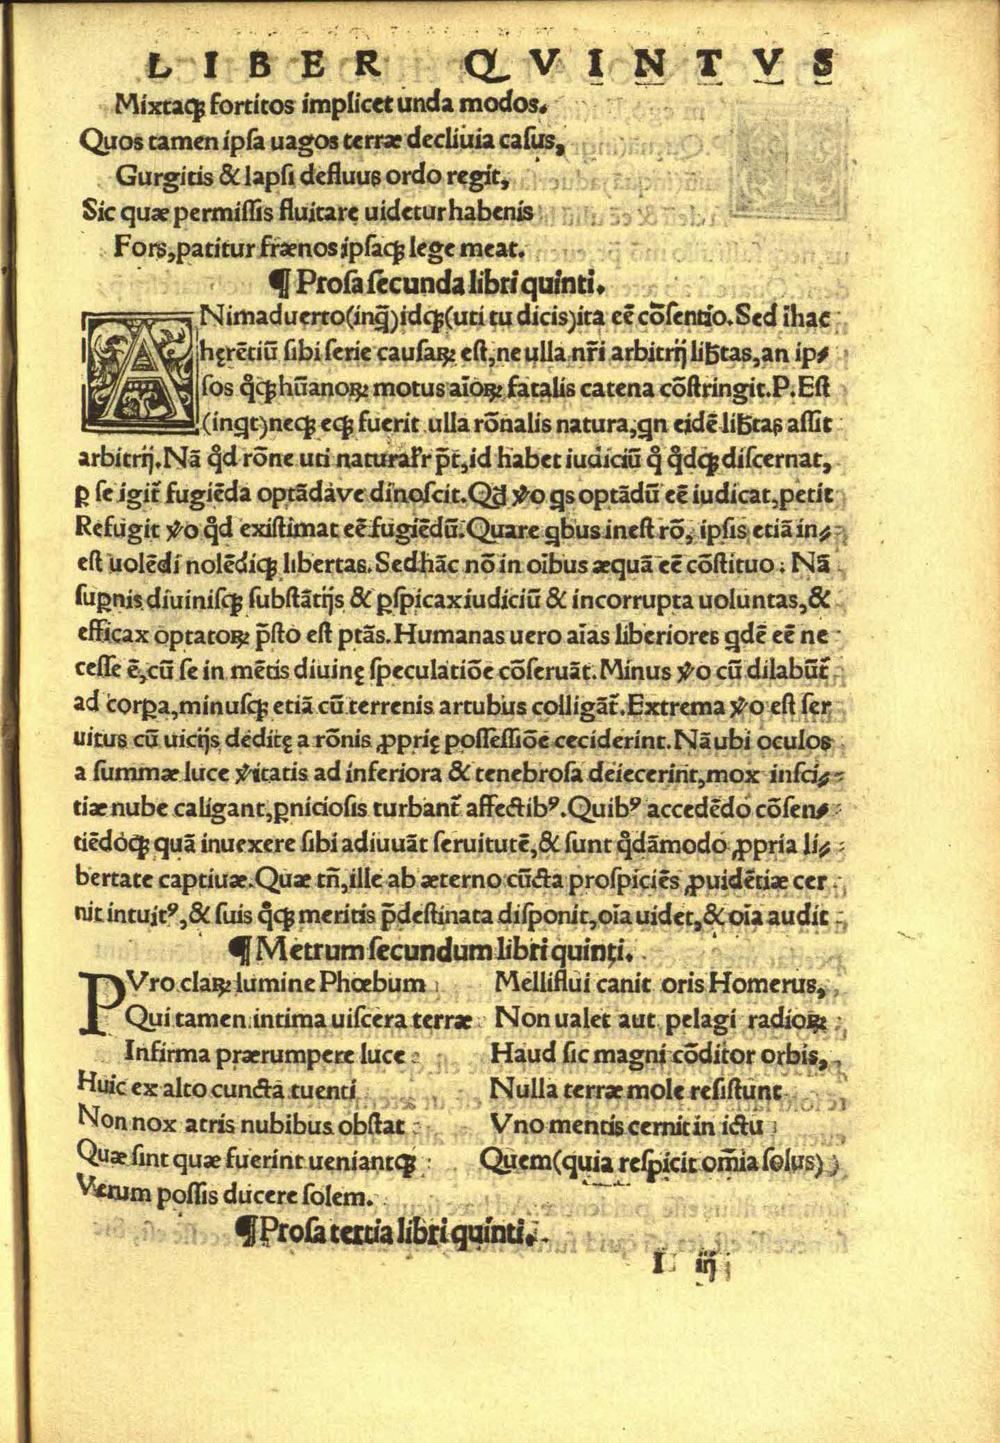 LIBER QVINTVS
Mixtaqꝫ fortitos implicet unda modos.
Quos tamen ipsa uagos terræ decliuia casus,
Gurgitis & lapsi defluus ordo regit,
Sic quæ permissis fluitare uidetur habenis
Fors, patitur frænos ipsaqꝫ lege meat.
¶ Prosa secunda libri quinti.
ANimaduerto(inq̃)idqꝫ(uti tu dicis)ita eẽ cõsentio. Sed ĩ hac
hęrẽtiũ sibi serie causaꝝ est, ne ulla nr̃i arbitrij lib̃tas, an ip⸗
sos q̊qꝫ hũanoꝝ motus aĩoꝝ fatalis catena cõstringit. P. Est
(inqt)neqꝫ eqꝫ fuerit ulla rõnalis natura, qn eidẽ lib̃tas assit
arbitrij. Nã q̊d rõne uti naturalr̃ p̃t, id habet iudiciũ q̊ q̊dqꝫ discernat,
ꝑ se igit̃ fugiẽda optãdáve dinoscit. Qd ꝟo qs optãdũ eẽ iudicat, petit
Refugit ꝟo q̊d existimat eẽ fugiẽdũ. Quare qbus inest rõ, ipsis etiã in⸗
est uolẽdi nolẽdiqꝫ libertas. Sed hãc nõ in oĩbus æquã eẽ cõstituo: Nã
suꝑnis diuinisqꝫ substãtijs & ꝑspicax iudiciũ & incorrupta uoluntas, &
efficax optatoꝝ p̃sto est ptãs. Humanas uero aĩas liberiores qdẽ eẽ ne
cesse ẽ, cũ se in mẽtis diuinę speculatiõe cõseruãt. Minus ꝟo cũ dilabũt̃
ad corꝑa, minusqꝫ etiã cũ terrenis artubus colligãt̃. Extrema ꝟo est ser
uitus cũ uicijs deditę a rõnis ꝓprię possessiõe ceciderint. Nã ubi oculos
a summæ luce ꝟitatis ad inferiora & tenebrosa deiecerint, mox insci⸗
tiæ nube caligant, ꝑniciosis turbant̃ affectibꝰ. Quibꝰ accedẽdo cõsen⸗
tiẽdoqꝫ quã inuexere sibi adiuuãt seruitutẽ, & sunt q̊dãmodo ꝓpria li⸗
bertate captiuæ. Quæ tñ, ille ab æterno cũcta prospiciẽs ꝓuidẽtiæ cer
nit intuitꝰ, & suis q̊qꝫ meritis p̃destinata disponit, oĩa uidet, & oĩa audit
¶ Metrum secundum libri quinti.
PVro claꝝ lumine Phœbum
Mellifluĩ canit oris Homerus,
Qui tamen intima uiscera terræ
Non ualet aut pelagi radioꝝ
Infirma prærumpere luce
Haud sic magni cõditor orbis,
Huic ex alto cuncta tuenti
Nulla terræ mole resistunt
Non nox atris nubibus obstat
Vno mentis cernit in ictu
Quæ sint quæ fuerint ueniantqꝫ
Quem(quia respicit om̃ia solus)
Verum possis ducere solem.
¶ Prosa tertia libri quinti.
I iij